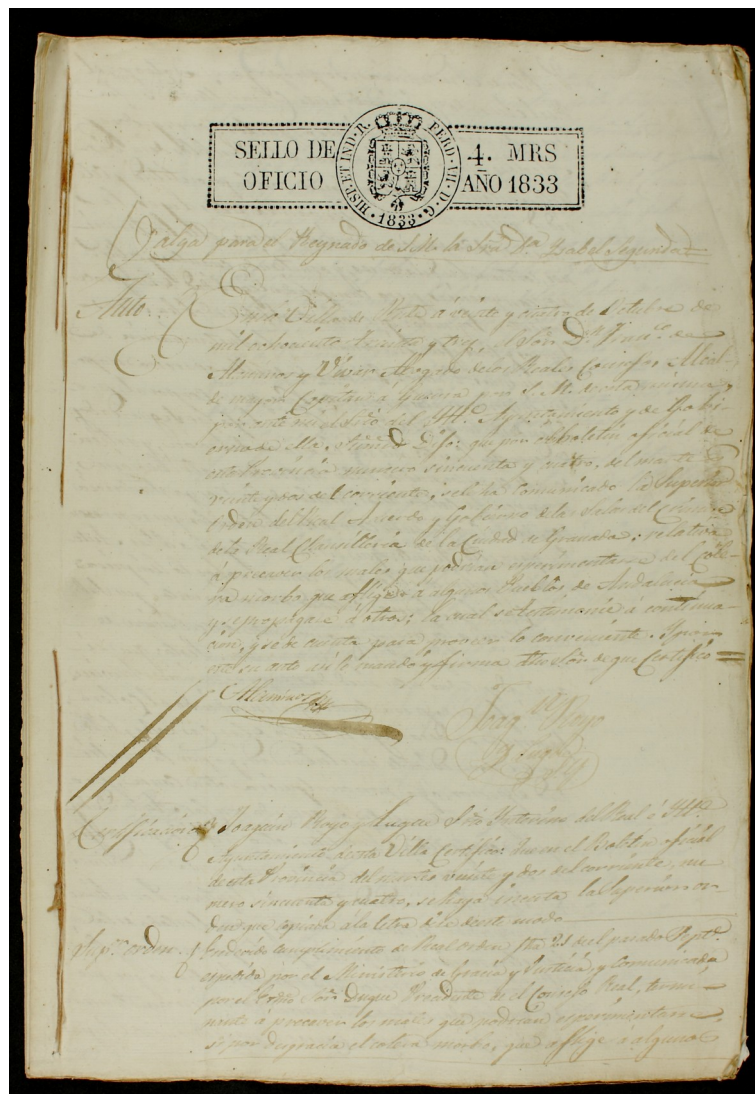 SELLO DE OFICIO
HISP. ET IND. R. FERD. VII. D. G. 1833
4. MRS AÑO 1833
Valga para el Reynado de S.M. la Sra. Da. Isabel Segunda
Auto. En la Villa de á veinte y cuatro de Octubre de
mil ochocientos treinta y tres, el Sor. Dn.
y Vivar Abogado de los Reales Consejos, Alcal-
de mayor Capitan á Guerra por S. M. de esta misma,
por ante mi el Srio. del Ayuntamiento y de
Dijo: que por el boletin oficial de
esta Provincia numero sincuenta y cuatro, del martes
veinte y dos del corriente, se le ha comunicado la Superior
Orden del Real Acuerdo y Gobierno de las Salas del Crimen
de la Real Chansilleria de la Ciudad de Granada; relativa
á precaver los males que podrian esperimentarse del Cole-
ra morbo que aflige á algunos Pueblos de Andalucia
y se propague á otros; la cual se testimonie á continua-
cion, y se de cuenta para proveer lo conveniente. Y por
este su auto asi lo mando y firma dicho Sor. de que Certifico
Joaqn. Royo
y Luque
Certificacion Joaquin Royo y Luque Srio. Interino del Real é
Ayuntamiento de esta Villa Certifico: Que en el Boletin oficial
de esta Provincia del martes veinte y dos del corriente, nu-
mero sincuenta y cuatro, se haya inserta la Superior or-
den que copiada á la letra dice de este modo
Supr. orden. cumplimiento de Real orden fha. 21 del pasado Septe.
espedida por el Ministerio de Gracia y Justicia, y Comunicada
por el Sor. Duque Presidente de el Consejo Real, termi-
nante á precaver los males que podrian esperimentarse
si por desgracia el colera morbo, que aflige a algunos